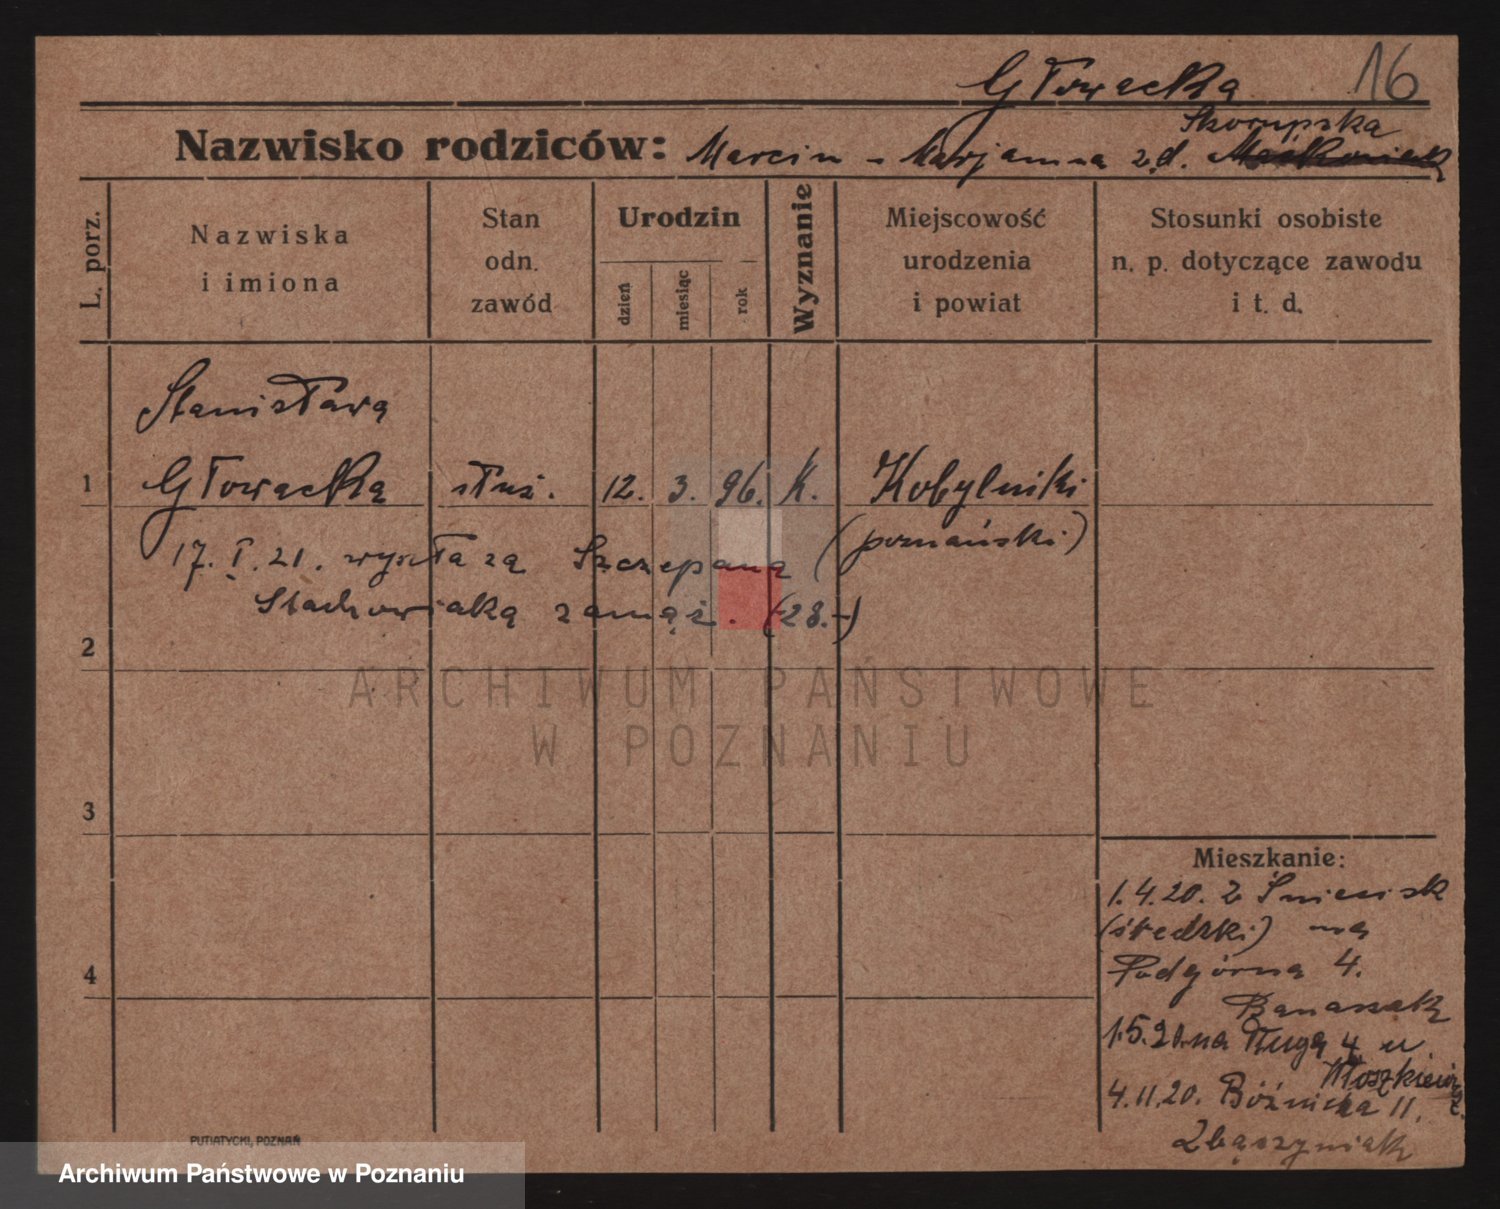 Głowacka 16
Skorupska
Nazwisko rodziców: Marcin - Marjanna z d. Maćkowiak
L. porz.
Nazwiska
i imiona
Stan
odn.
zawód
Urodzin
dzień
miesiąc
rok
Wyznanie
Miejscowość
urodzenia
i powiat
Stosunki osobiste
n. p. dotyczące zawodu
i t. d.
Stanisława
1 Głowacka służ. 12. 3. 96. K. Kobylniki
(poznański)
17. I. 21. wyszła za Szczepana
Stachowiaka zamąż. (28.-)
2
ARCHIWUM PAŃSTWOWE
W POZNANIU
3
Mieszkanie:
1.4.20. z Śniecisk
(średzki) na
4 Podgórną 4.
Banaszak
1.5.20. na Długą 4 u
Moszkiewicz
4.11.20. Bóźnicza 11.
Zbąszyniak
PUTIATYCKI, POZNAŃ
Archiwum Państwowe w Poznaniu